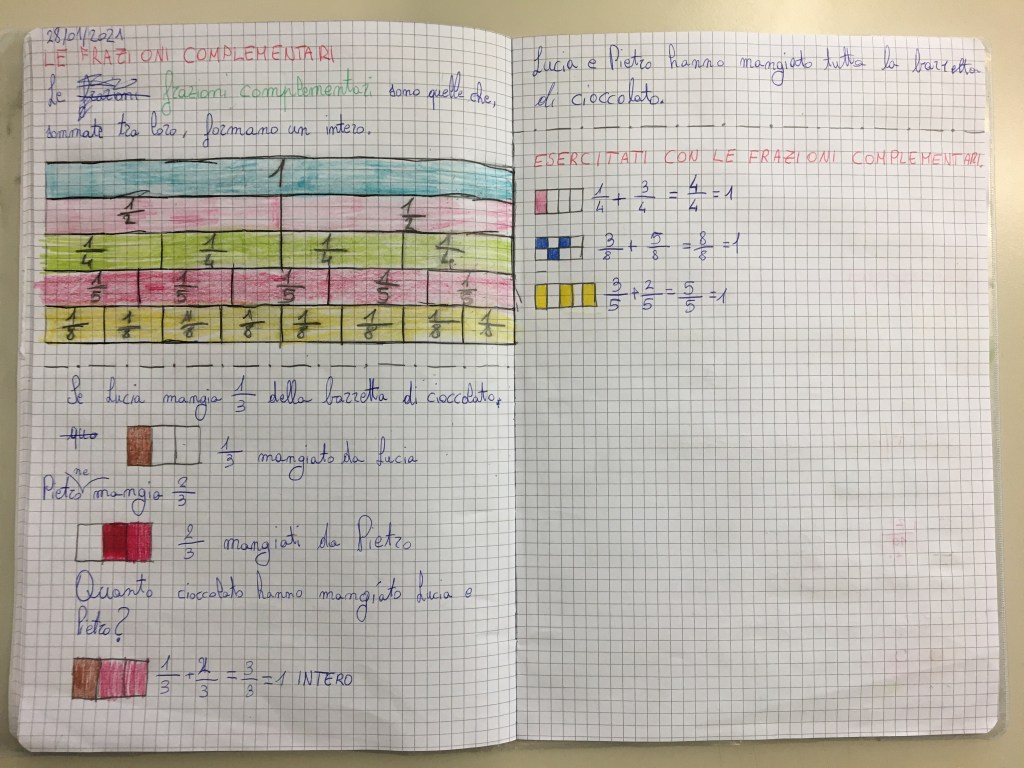 28/01/2021
LE FRAZIONI COMPLEMENTARI
Le frazioni complementari sono quelle che,
sommate tra loro, formano un intero.
1
1/2 1/2
1/4 1/4 1/4 1/4
1/5 1/5 1/5 1/5 1/5
1/8 1/8 1/8 1/8 1/8 1/8 1/8 1/8
Se Lucia mangia 1/3 della barretta di cioccolato,
1/3 mangiato da Lucia
Pietro ne mangia 2/3
2/3 mangiati da Pietro
Quanto cioccolato hanno mangiato Lucia e
Pietro?
1/3 + 2/3 = 3/3 = 1 INTERO
Lucia e Pietro hanno mangiato tutta la barretta
di cioccolato.
ESERCITATI CON LE FRAZIONI COMPLEMENTARI.
1/4 + 3/4 = 4/4 = 1
3/8 + 5/8 = 8/8 = 1
3/5 + 2/5 = 5/5 = 1